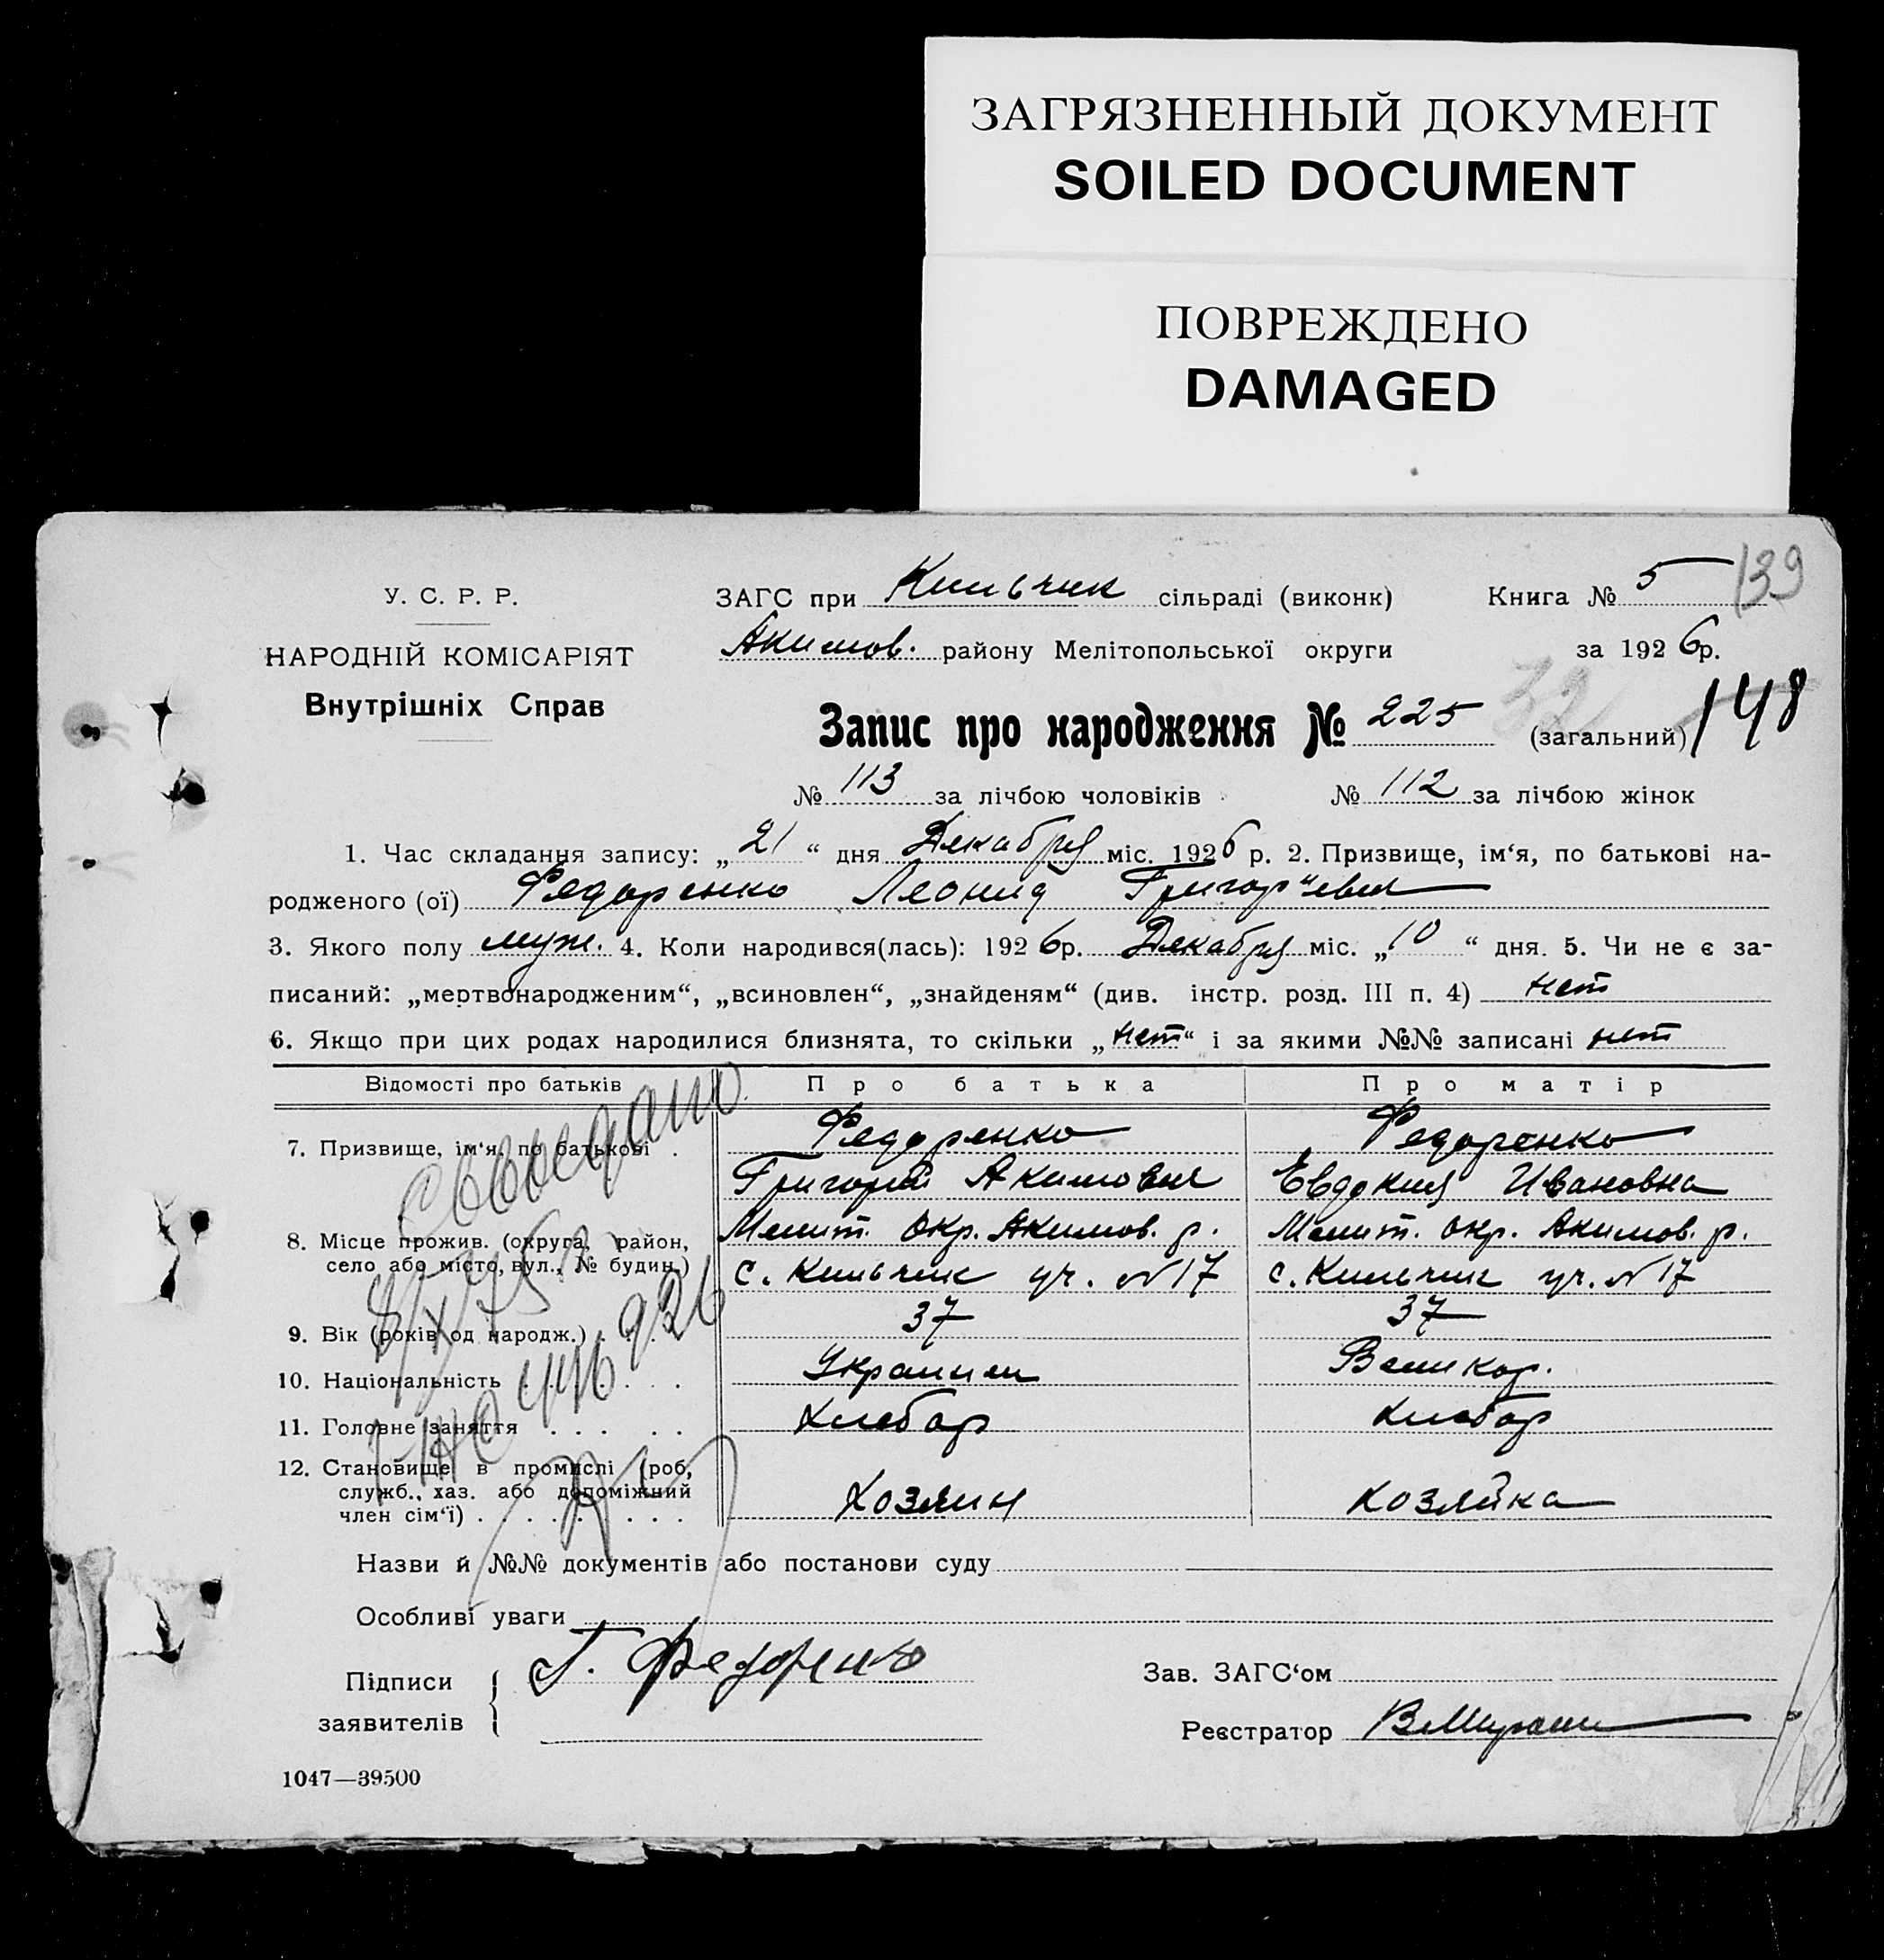 ЗАГРЯЗНЕННЫЙ ДОКУМЕНТ
SOILED DOCUMENT
ПОВРЕЖДЕНО
DAMAGED
139
У. С. Р. Р.
НАРОДНІЙ КОМІСАРІЯТ
Внутрішніх Справ
ЗАГС при Кильчик сільраді (виконк) Книга № 5
Акимов. району Мелітопольської округи за 1926р.
32
Запис про народження № 225 (загальний) 148
№ 113 за лічбою чоловіків № 112 за лічбою жінок
1. Час складання запису: „21“ дня Декабря міс. 1926 р. 2. Призвище, ім‘я, по батькові на-
родженого (ої) Федоренко Леонид Григорьевич
3. Якого полу муж. 4. Коли народився(лась): 1926р. Декабря міс. „10“ дня. 5. Чи не є за-
писаний: „мертвонародженим“, „всиновлен“, „знайденям“ (див. інстр. розд. III п. 4) нет
6. Якщо при цих родах народилися близнята, то скільки „нет“ і за якими №№ записані нет
Відомості про батьків Про батька Про матір
7. Призвище, ім‘я, по батькові . Федоренко Федоренко
Григорий Акимович Евдокия Ивановна
8. Місце прожив. (округа, район, Мелит. Окр. Акимов. р. Мелит. окр. Акимов. р.
село або місто, вул., № будин.) с. Кильчик уч. №17 с. Кильчик уч. №17
9. Вік (років од народж.) . . . 37 37
10. Національність . . . . . Украинец Великор.
11. Головне заняття . . . . . Хлебор Хлебор
12. Становище в промислі (роб,
служб., хаз. або допоміжний Хозяин Хозяйка
член сім‘ї) . . . . . . . .
Назви й №№ документів або постанови суду
Особливі уваги
Підписи Г. Федоренко Зав. ЗАГС‘ом
заявителів Реєстратор
1047—39500